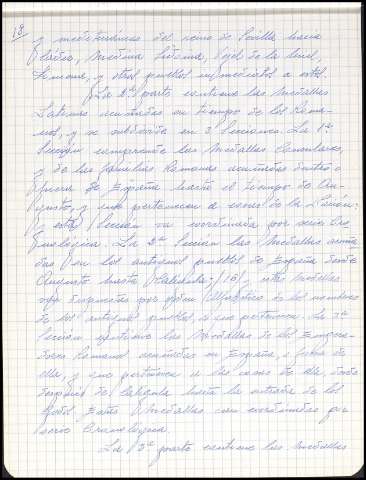 18
y meridionales del reino de Sevilla hacia
Medina Sidonia, Vejer de la
y otros pueblos inmediatos a estos.
La 2ª parte contiene las Medallas
Latinas acuñadas en tiempo de los Roma-
nos, y se subdivide en 3 Secciones. La 1ª
Sección comprende las Medallas Consulares,
y de las familias Romanas acuñadas dentro o
fuera de España hasta el tiempo de Au-
gusto, y que pertenecen a cosas de la
esta Sección va coordinada por serie Cro-
nológica. La 2ª Sección las Medallas acuña-
das en los antiguos pueblos de España desde
Augusto hasta Calígula; (16) estas Medallas
van dispuestas por orden Alfabético de los nombres
de los antiguos pueblos a que pertenecen. La 3ª
Sección contiene las Medallas de los Empera-
dores Romanos acuñadas en España, o fuera de
ella, y que pertenecen a las cosas de ella, desde
después de Calígula hasta la entrada de los
Godos. Estas Medallas van coordinadas por
serie Cronológica.
La 3ª parte contiene las Medallas